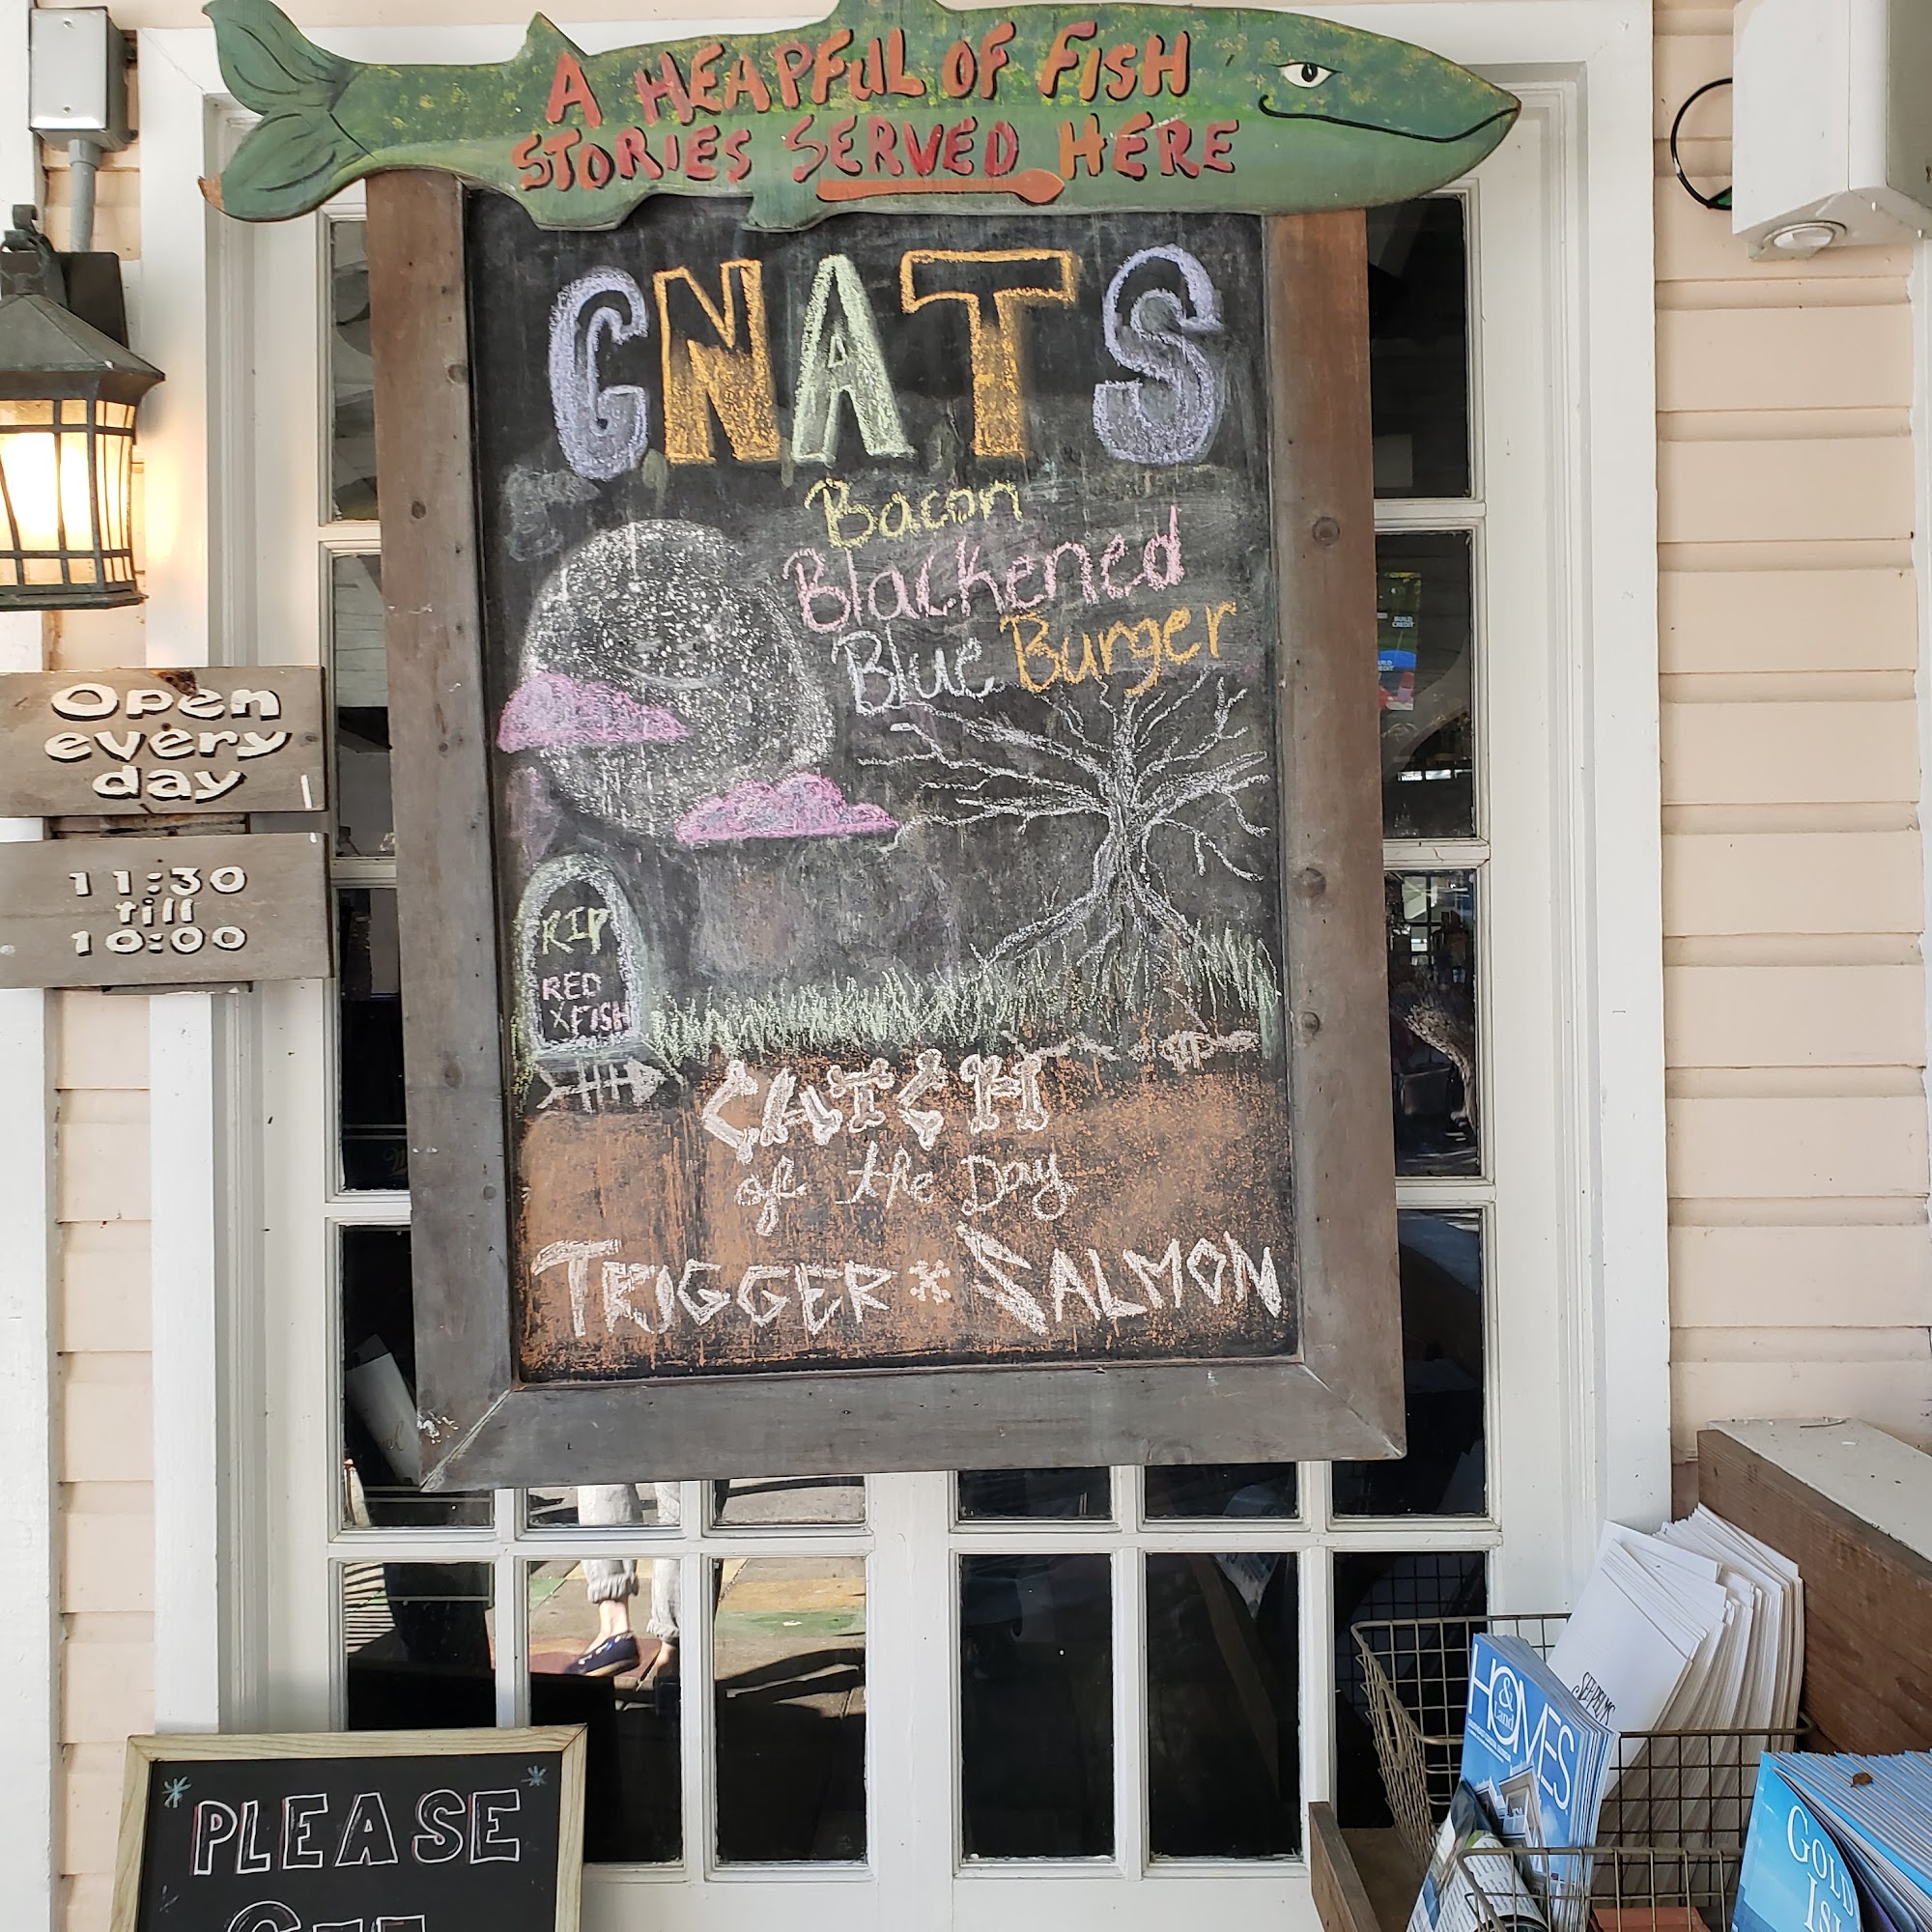 A HEAPFUL OF FISH
STORIES SERVED HERE
GNATS
Bacon
Blackened
Blue Burger
Open
every
day
11:30
till
10:00
RIP
RED
XFISH
RIP
CATCH
of the Day
TRIGGER * SALMON
PLEASE
HOMES
& Land
GOLD
BUILD
CREDIT